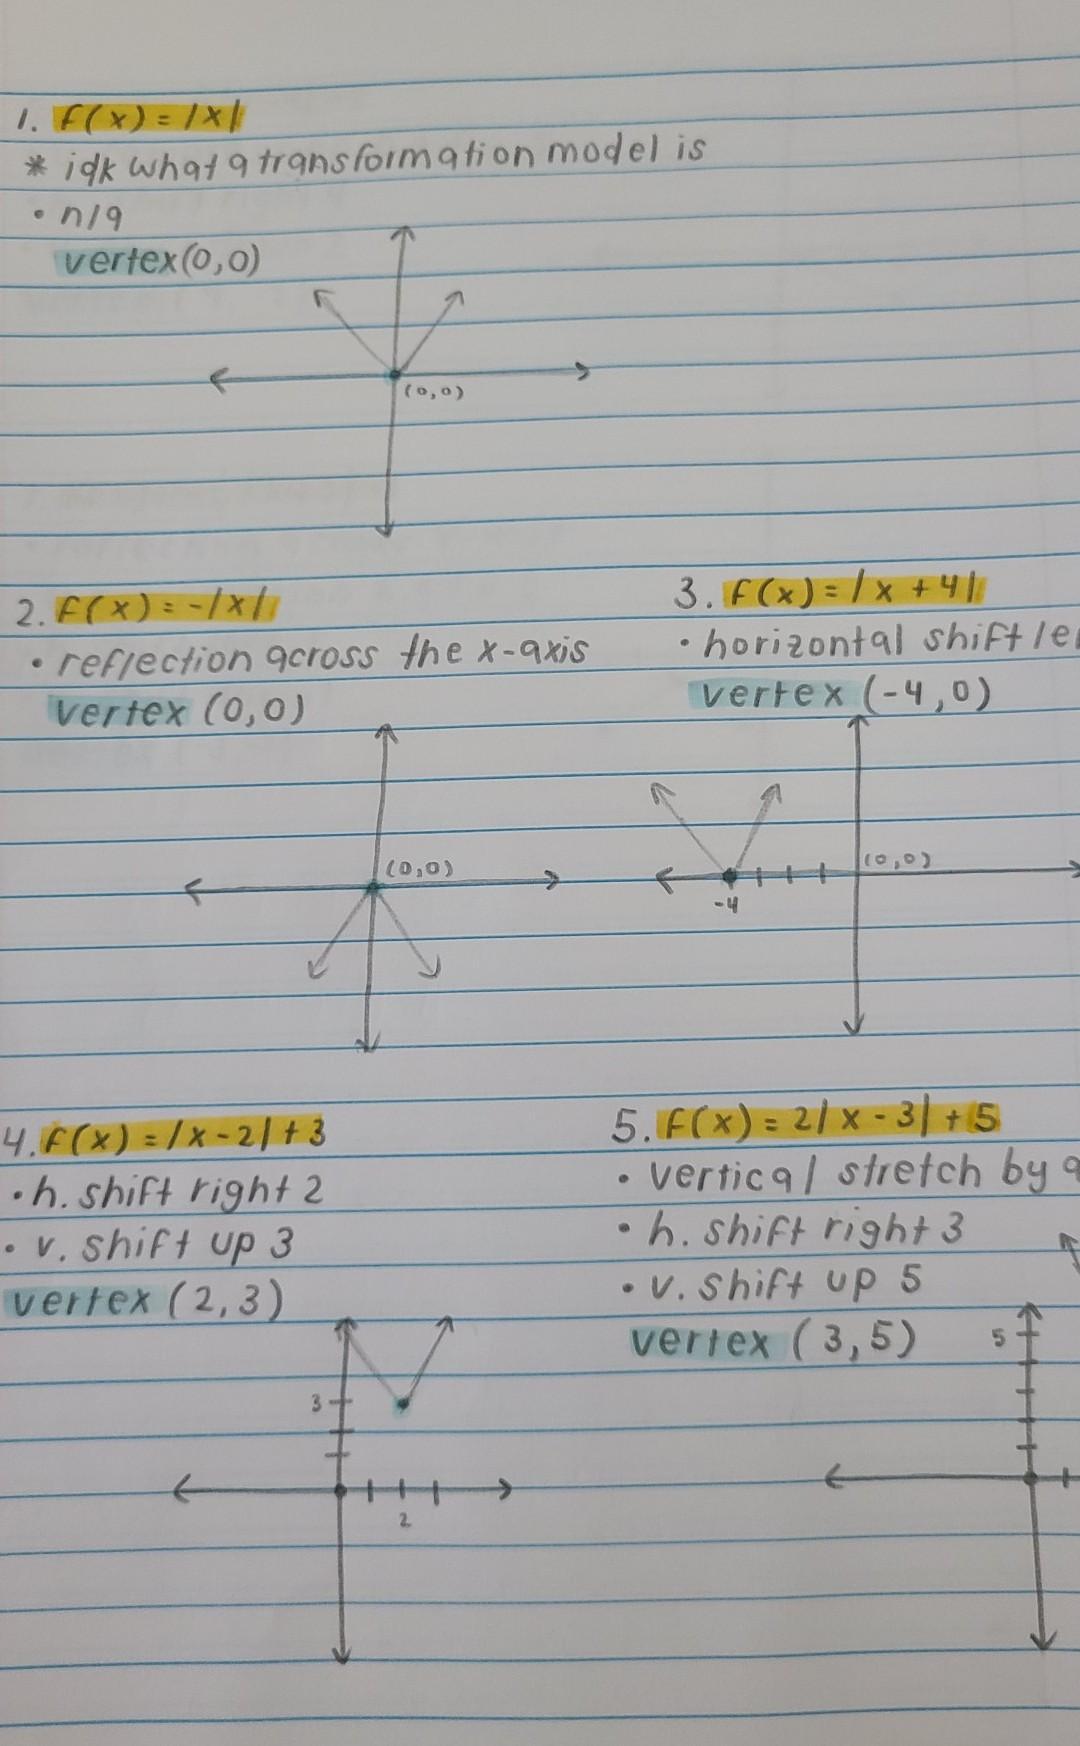 1. f(x) = |x|
* idk what a transformation model is
• n/a
vertex (0,0)
(0,0)
2. f(x) = -|x|
• reflection across the x-axis
vertex (0,0)
(0,0)
3. f(x) = |x + 4|
• horizontal shift
vertex (-4,0)
(0,0)
-4
4. f(x) = |x-2| + 3
• h. shift right 2
• v. shift up 3
vertex (2,3)
3
2
5. f(x) = 2|x-3| + 5
• vertical stretch by
• h. shift right 3
• v. shift up 5
vertex (3,5)
5